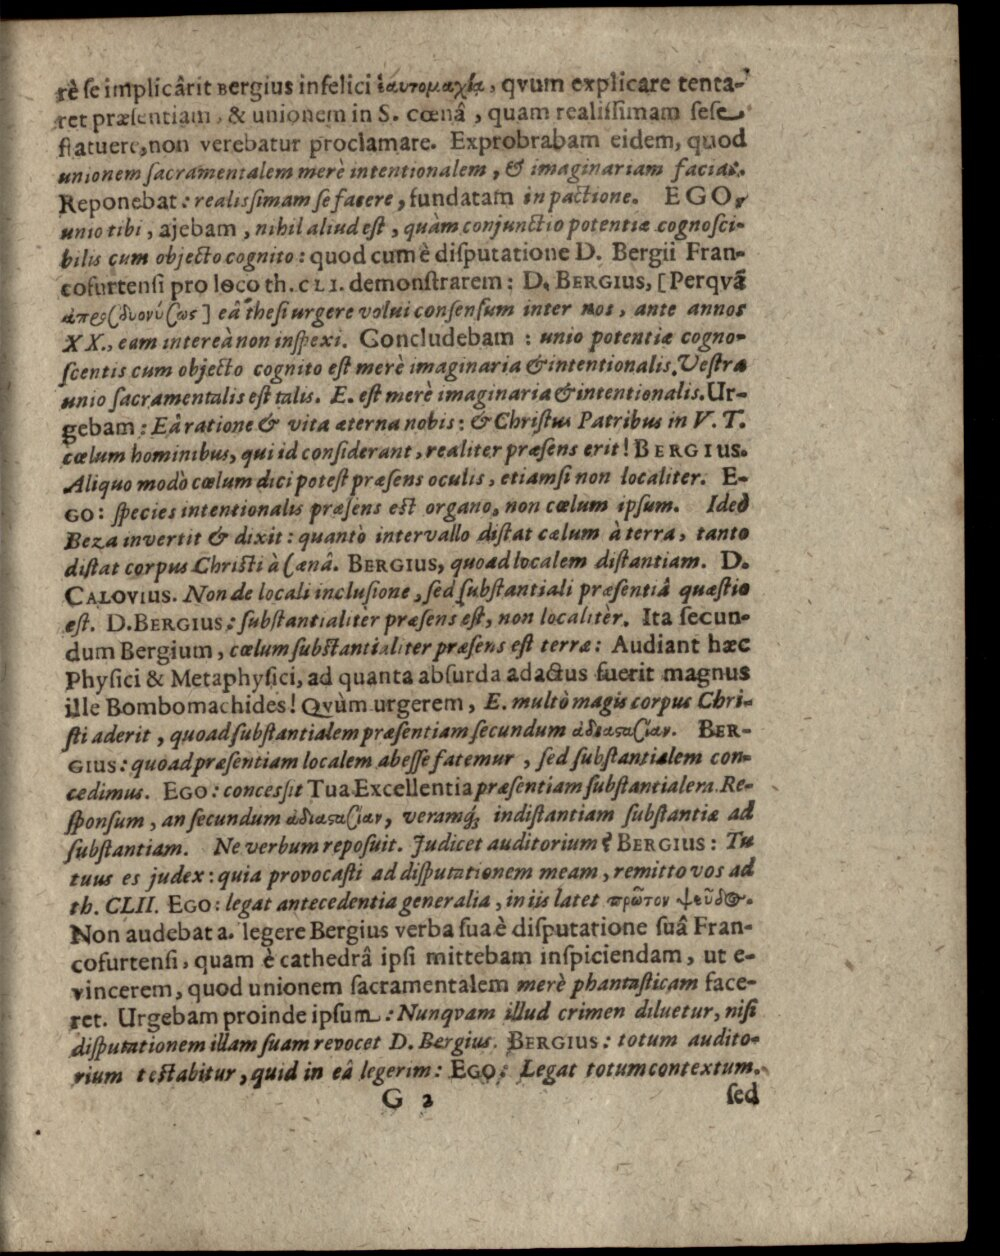 rè se implicârit Bergius infelici ἑαυτομαχίᾳ, qvum explicare tenta-
ret præsentiam, & unionem in S. cœnâ, quam realissimam sese
statuere, non verebatur proclamare. Exprobrabam eidem, quod
unionem sacramentalem merè intentionalem, & imaginariam facias.
Reponebat: realissimam se facere, fundatam in pactione. EGO,
unio tibi, ajebam, nihil aliud est, quàm conjunctio potentiæ cognosci-
bilis cum objecto cognito: quod cum è disputatione D. Bergii Fran-
cofurtensi pro loco th. CLI. demonstrarem: D. BERGIUS, [Perqvã
ἀπροσδιονύσως] eâ thesi urgere volui consensum inter nos, ante annos
XX., eam intereà non inspexi. Concludebam: unio potentiæ cogno-
scentis cum objecto cognito est merè imaginaria & intentionalis. Vestra
unio sacramentalis est talis. E. est merè imaginaria & intentionalis. Ur-
gebam: Eâ ratione & vita æterna nobis: & Christus Patribus in V. T.
cœlum hominibus, qui id considerant, realiter præsens erit! BERGIUS.
Aliquo modò cœlum dici potest præsens oculis, etiamsi non localiter. E-
GO: species intentionalis præsens est organo, non cœlum ipsum. Ideò
Beza invertit & dixit: quantò intervallo distat cælum à terra, tanto
distat corpus Christi à Cœnâ. BERGIUS, quoad localem distantiam. D.
CALOVIUS. Non de locali inclusione, sed substantiali præsentiâ quæstio
est. D. BERGIUS: substantialitèr præsens est, non localitèr. Ita secun-
dum Bergium, cœlum substantialiter præsens est terræ: Audiant hæc
Physici & Metaphysici, ad quanta absurda adactus fuerit magnus
ille Bombomachides! Qvùm urgerem, E. multò magis corpus Chri-
sti aderit, quoad substantialem præsentiam secundum ἀδιαστασίαν. BER-
GIUS: quoad præsentiam localem abesse fatemur, sed substantialem con-
cedimus. EGO: concessit Tua Excellentia præsentiam substantialem. Re-
sponsum, an secundum ἀδιαστασίαν, veramq; indistantiam substantiæ ad
substantiam. Ne verbum reposuit. Judicet auditorium? BERGIUS: Tu
tuus es judex: quia provocasti ad disputationem meam, remitto vos ad
th. CLII. EGO: legat antecedentia generalia, in iis latet πρῶτον ψεῦδος.
Non audebat a. legere Bergius verba sua è disputatione suâ Fran-
cofurtensi, quam è cathedrâ ipsi mittebam inspiciendam, ut e-
vincerem, quod unionem sacramentalem merè phantasticam face-
ret. Urgebam proinde ipsum: Nunqvam illud crimen diluetur, nisi
disputationem illam suam revocet D. Bergius. BERGIUS: totum audito-
rium testabitur, quid in eâ legerim: EGO: Legat totum contextum.
G 2 sed